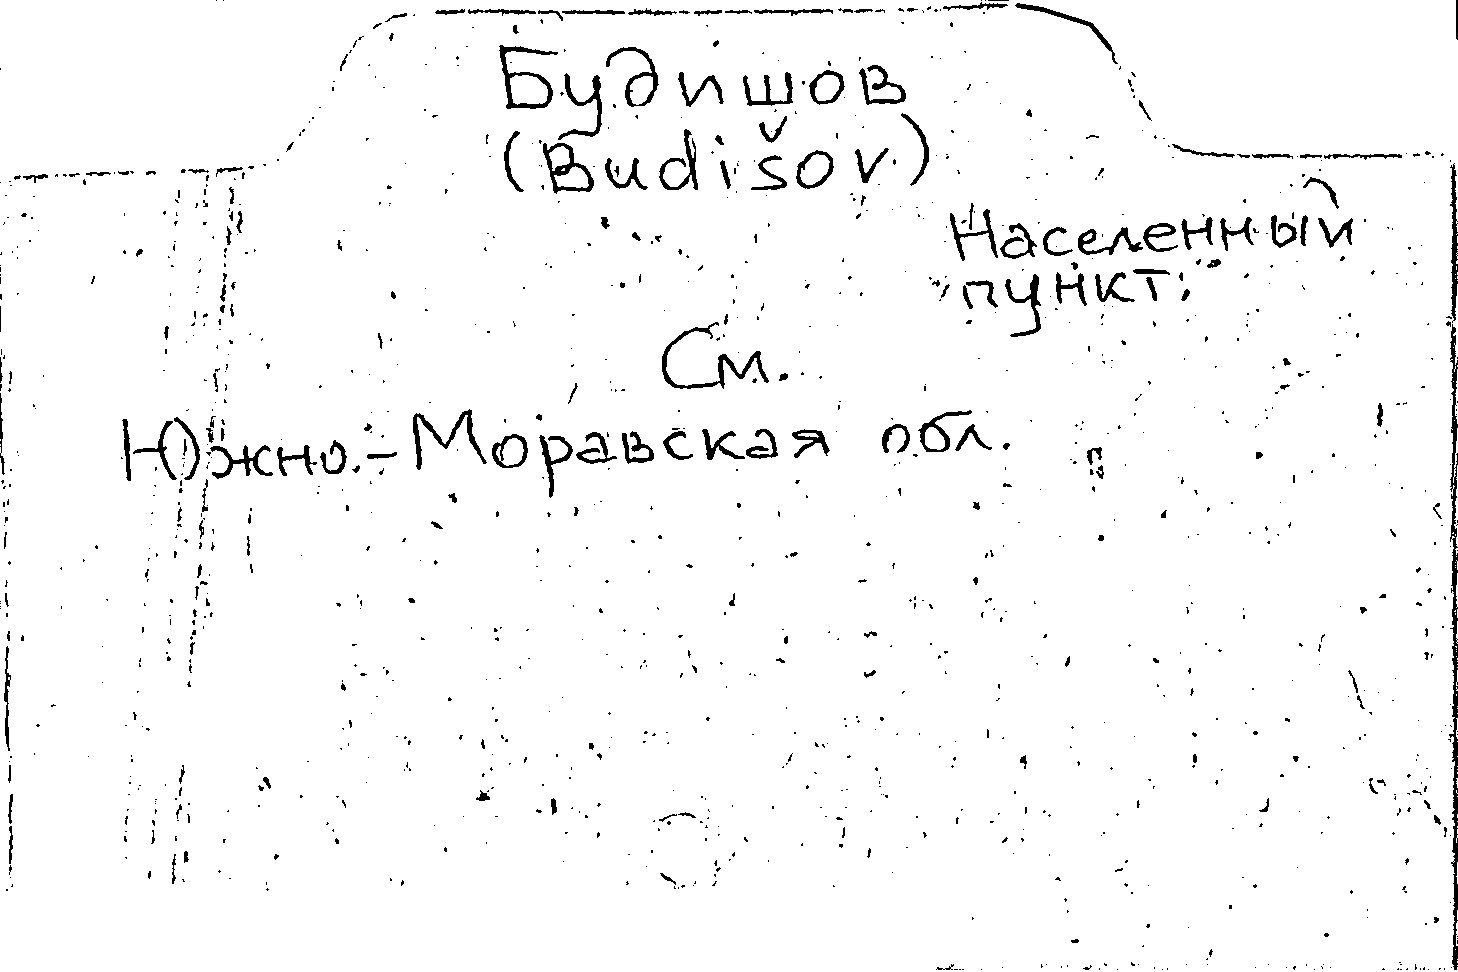 Будишов
(Budišov)
Населенный
пункт.
См.
Южно-Моравская обл.